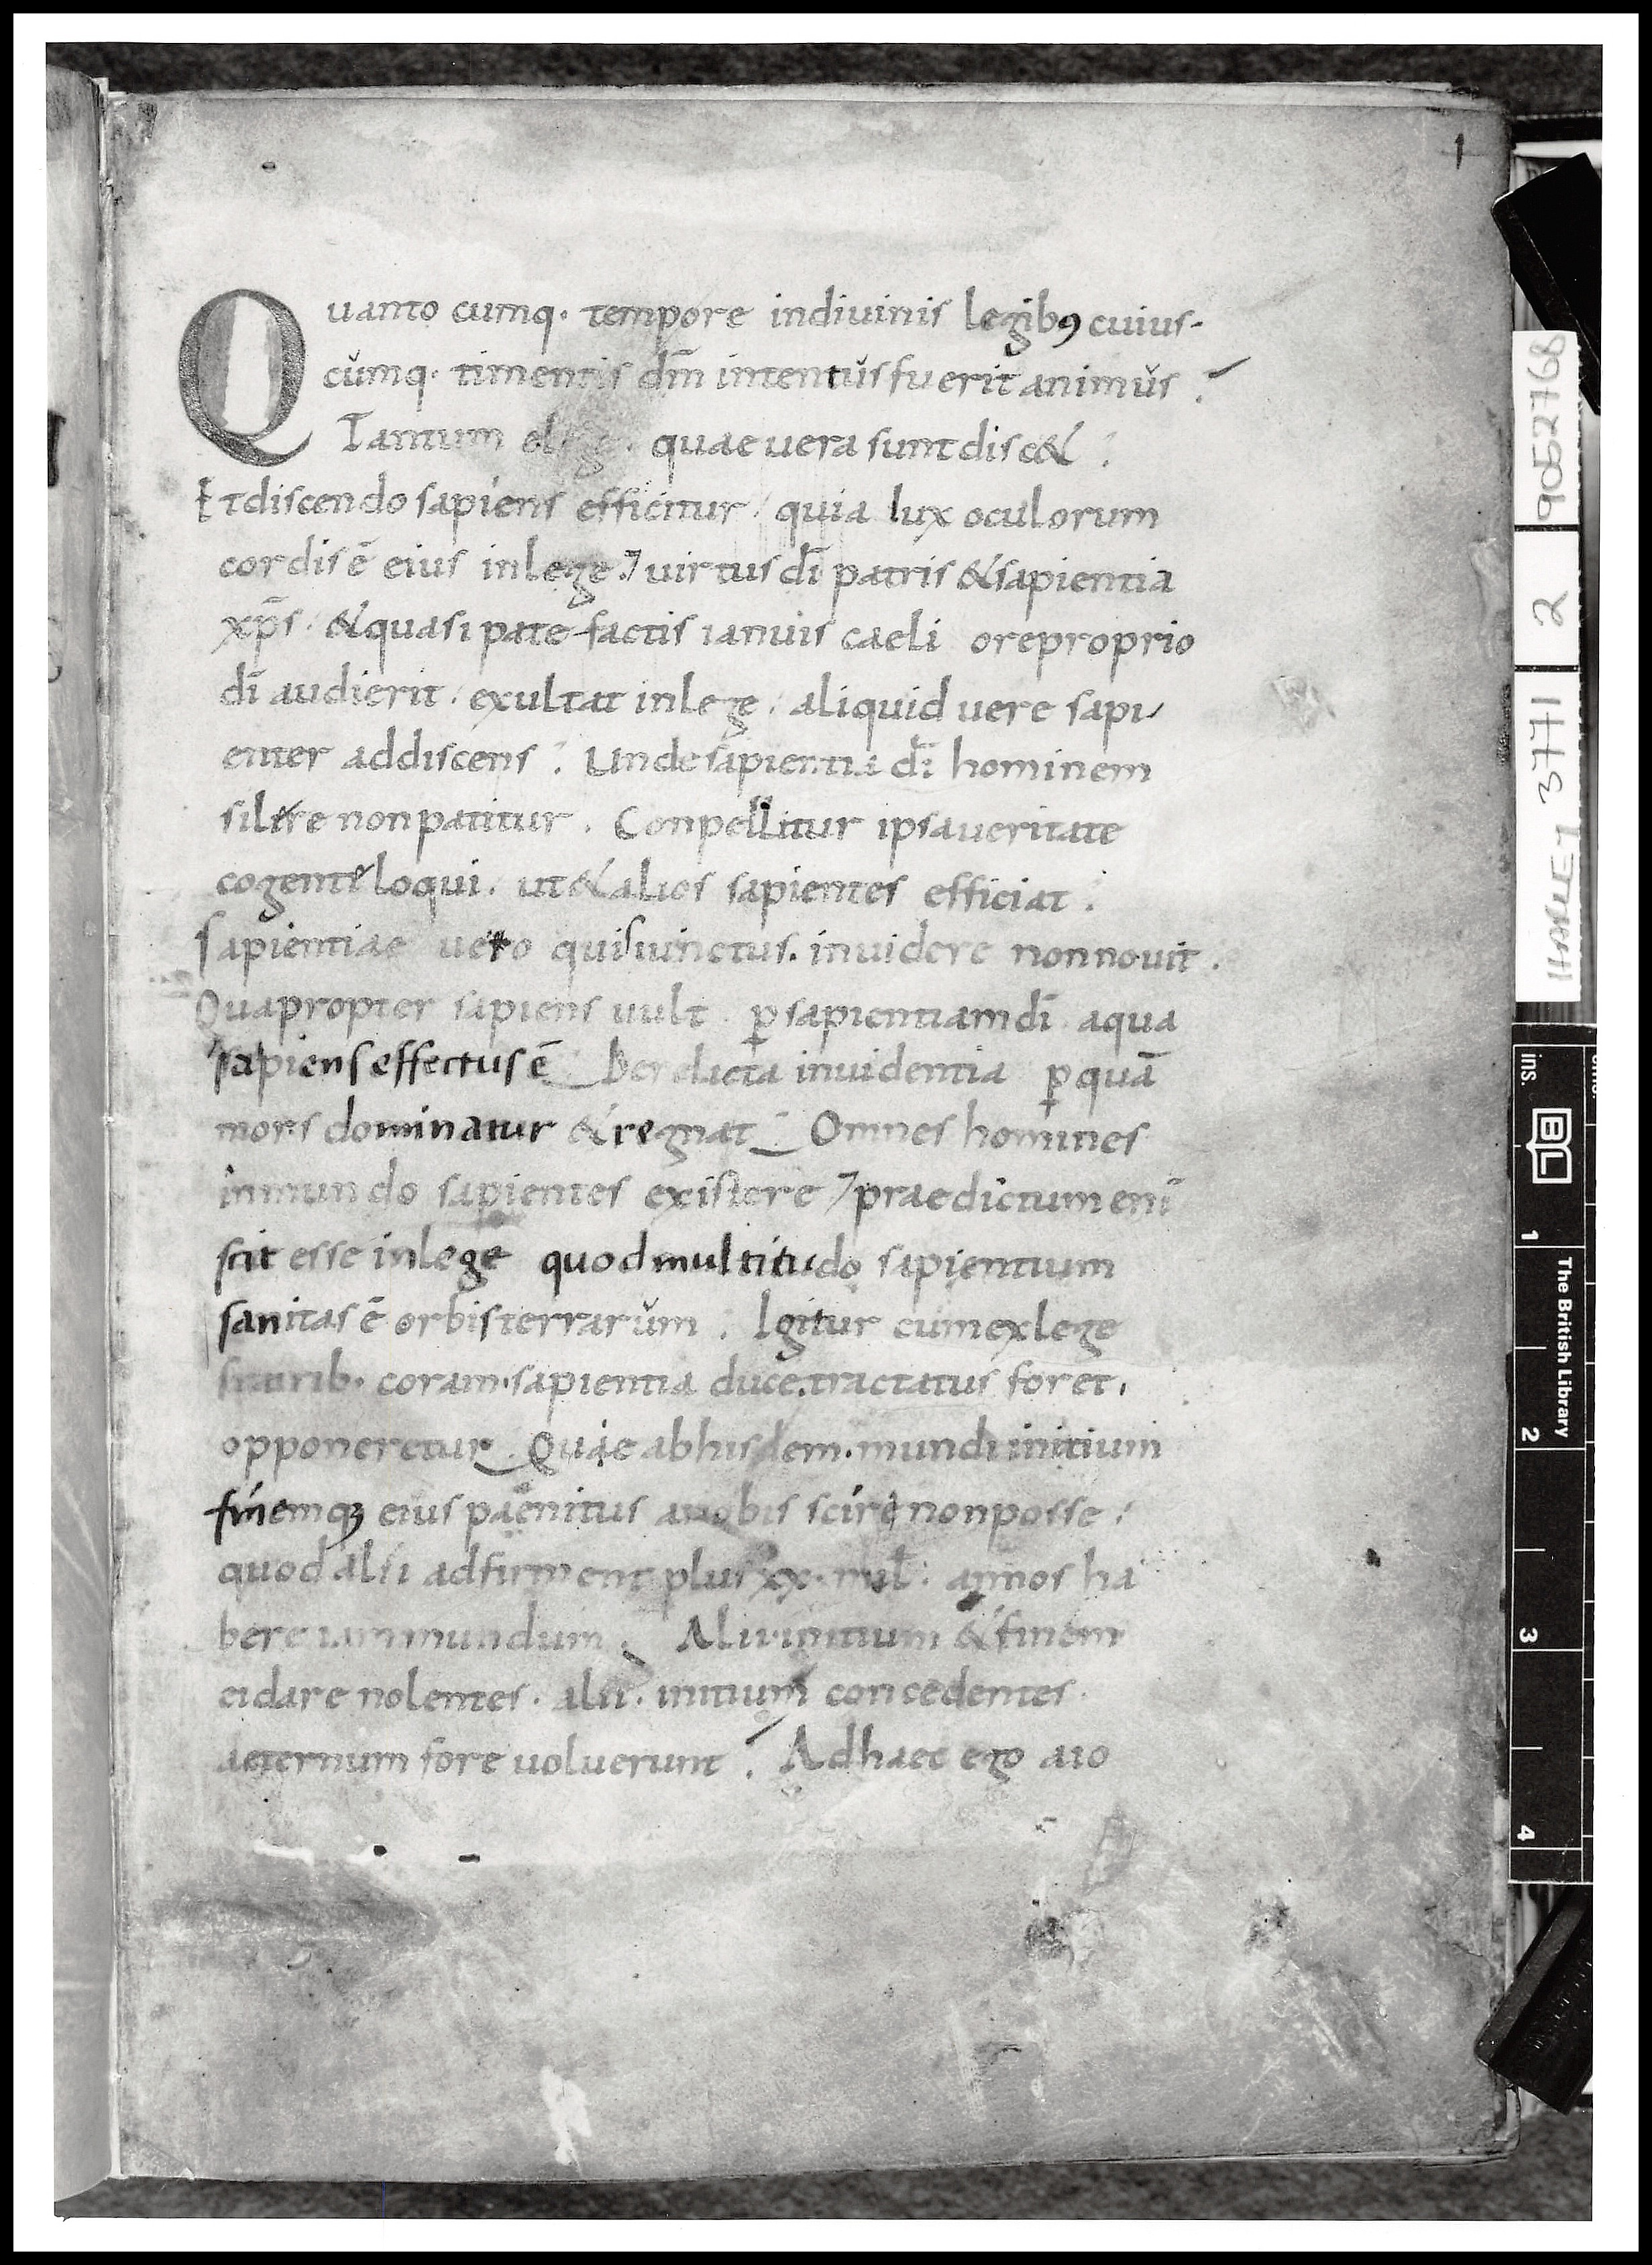 1
Quanto cumq· tempore indiuinis legibꝰ cuius-
cumq· timentis dm̄ intentus fuerit animus
Tantum quae uera sunt disc&
Et discendo sapiens efficitur quia lux oculorum
cordis ē eius inlege uirtus dī patris & sapientia
xp̄s & quasi patefactis ianuis caeli ore proprio
dī audierit. exultat inlege. aliquid uere sapi
enter addiscens. Unde sapientia dī hominem
silere non patitur. Conpellitur ipsa ueritate
cogente loqui. ut & alios sapientes efficiat.
Sapientiae uero quis iunctus. inuidere non nouit.
Quapropter sapiens uult ꝑ sapientiam dī aqua
sapiens effectus ē Derelicta inuidentia ꝑquā
mors dominatur & regnat Omnes homines
inmundo sapientes existere praedictum enī
scit esse inlege quod multitudo sapientium
sanitas ē orbis terrarum. Igitur cum exlege
coram sapientia duce. tractatus foret.
opponeretur Quae ab hisdem. mundi initium
finemqꝫ eius paenitus a nobis scire non posse
quod alii adfirment plus xx. mil. annos ha
bere iam mundum. Alii initium & finem
ei dare nolentes. alii. initium concedentes.
aeternum fore uoluerunt. Ad haec ego aio
HARLEY 3771
2
9052768
cms.
ins.
BL
The British Library
1
2
3
4